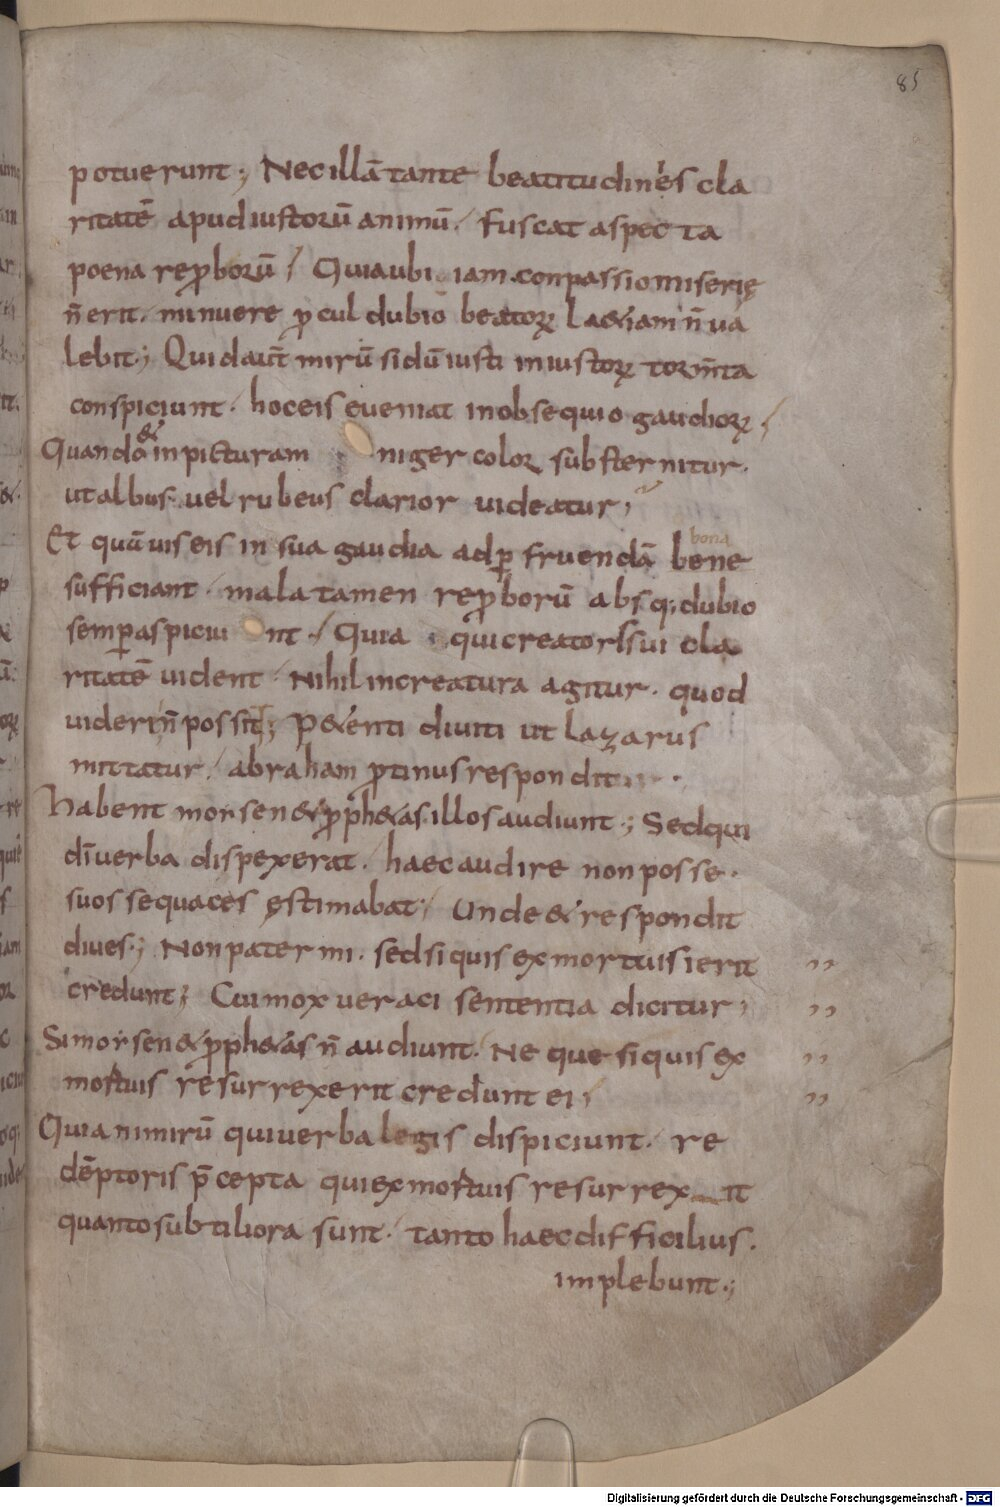 85
potuerunt; Nec illā tante beatitudinis cla
ritatē apud iustorū animū / fuscat aspecta
poena reꝓborū / Quia ubi iam conpassio miserię
n̄ erit. minuere ꝓcul dubio beatoꝝ l&itiam n̄ ua
lebit; Quid aut̄ mirū si dū iusti iniustoꝝ torm̄ta
conspiciunt. hoc eis eueniat in obsequio gaudioꝝ /
Quando & in picturam niger color substernitur.
ut albus uel rubeus clarior uideatur;
Et quāuis eis in sua gaudia ad ꝑfruendā bene
bona
sufficiant. mala tamen reꝓborū absq; dubio
semꝑ aspiciunt / Quia qui creatoris sui cla
ritatē uident / Nihil in creatura agitur. quod
uideri n̄ possit; P&enti diuiti ut lazarus
mittatur / abraham ꝓtinus respondit
habent morsen & ꝓph&as. illos audiunt; Sed qui
dī uerba dispexerat / haec audire non posse.
suos sequaces ęstimabat; Unde & respondit
diues; Non pater mi. sed si quis ex mortuis ierit
credunt; Cui mox ueraci sententia dicitur;
Si morsen & ꝓph&as n̄ audiunt. Neque si quis ex
mortuis resurrexerit credunt ei;
Quia nimirū qui uerba legis dispiciunt / re
dēptoris p̄cepta qui ex mortuis resurrexit
quanto subtiliora sunt / tanto haec difficilius.
implebunt;
Digitalisierung gefördert durch die Deutsche Forschungsgemeinschaft - DFG